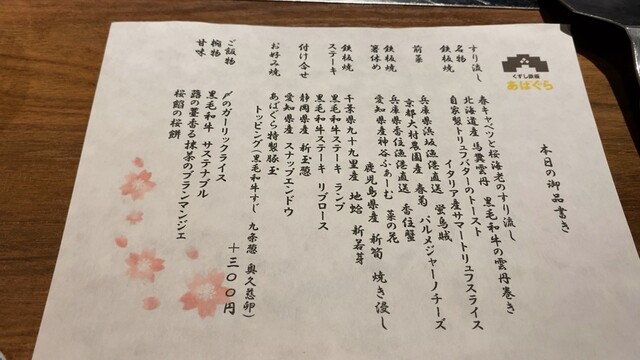 くずし鉄板
あばぐら
本日の御品書き
すり流し 春キャベツと桜海老のすり流し
名物 北海道産 馬糞雲丹 黒毛和牛の雲丹巻き
鉄板焼 自家製トリュフバターのトースト
イタリア産サマートリュフスライス
前菜 兵庫県浜坂漁港直送 蛍烏賊
京都大村農園産 春菊 パルメジャーノチーズ
鉄板焼 兵庫県香住漁港直送 香住蟹
箸休め 愛知県産神谷ふぁーむ 菜の花
鹿児島県産 新筍 焼き浸し
鉄板焼 千葉県九十九里産 地蛤 新若芽
ステーキ 黒毛和牛ステーキ ランプ
黒毛和牛ステーキ リブロース
付け合せ 静岡県産 新玉葱
愛知県産 スナップエンドウ
お好み焼 あばぐら特製豚玉
トッピング(黒毛和牛すじ 九条葱 奥久慈卵)
+三〇〇円
ご飯物 〆のガーリックライス
椀物 黒毛和牛 サステナブル
甘味 蕗の薹香る抹茶のブランマンジェ
桜餡の桜餅